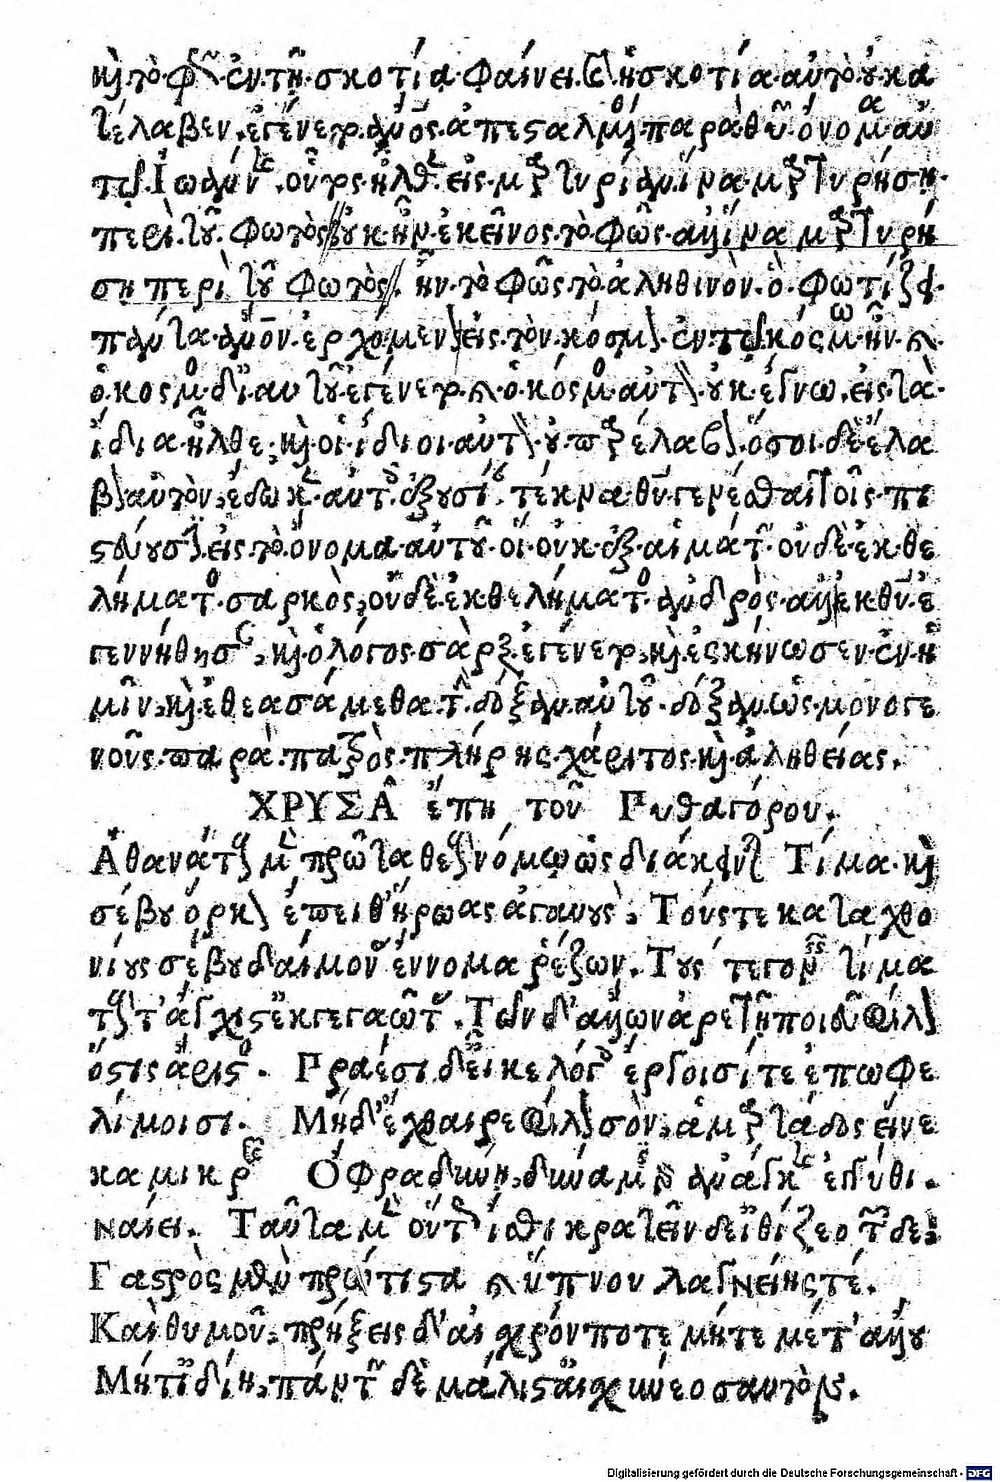 καὶ τὸ φῶς ἐν τῇ σκοτίᾳ φαίνει. καὶ ἡ σκοτία αὐτὸ οὐ κα
τέλαβεν. ἐγένετο ἄνθρωπος ἀπεσταλμένος παρὰ θεοῦ. ὄνομα αὐ
τῷ Ἰωάννης. οὗτος ἦλθεν εἰς μαρτυρίαν. ἵνα μαρτυρήσῃ
περὶ τοῦ φωτός. οὐκ ἦν ἐκεῖνος τὸ φῶς. ἀλλ' ἵνα μαρτυρή
σῃ περὶ τοῦ φωτός. ἦν τὸ φῶς τὸ ἀληθινὸν. ὃ φωτίζει
πάντα ἄνθρωπον ἐρχόμενον εἰς τὸν κόσμον. ἐν τῷ κόσμῳ ἦν. καὶ
ὁ κόσμος δι' αὐτοῦ ἐγένετο. καὶ ὁ κόσμος αὐτὸν οὐκ ἔγνω. εἰς τὰ
ἴδια ἦλθε, καὶ οἱ ἴδιοι αὐτὸν οὐ παρέλαβον. ὅσοι δὲ ἔλα
βον αὐτὸν, ἔδωκεν αὐτοῖς ἐξουσίαν τέκνα θεοῦ γενέσθαι τοῖς πι
στεύουσιν εἰς τὸ ὄνομα αὐτοῦ. οἳ οὐκ ἐξ αἱμάτων οὐδὲ ἐκ θε
λήματος σαρκὸς, οὐδὲ ἐκ θελήματος ἀνδρὸς. ἀλλ' ἐκ θεοῦ ἐ
γεννήθησαν, καὶ ὁ λόγος σὰρξ ἐγένετο, καὶ ἐσκήνωσεν ἐν ἡ
μῖν, καὶ ἐθεασάμεθα τὴν δόξαν αὐτοῦ. δόξαν ὡς μονογε
νοῦς παρὰ πατρὸς πλήρης χάριτος καὶ ἀληθείας.
ΧΡΥΣΑ͂ ἔπη τοῦ Πυθαγόρου.
Ἀθανάτους μὲν πρῶτα θεοὺς νόμῳ ὡς διάκεινται Τίμα καὶ
σέβου ὅρκον ἔπειθ' ἥρωας ἀγαυούς, Τούς τε καταχθο
νίους σέβου δαίμονας ἔννομα ῥέζων. Τούς τε γονεῖς τίμα
τούς τ' ἄγχιστ' ἐκγεγαῶτας. Τῶν δ' ἄλλων ἀρετῇ ποιοῦ φίλον
ὅστις ἄριστος. Πραέσι δ' εἶκε λόγοις ἔργοισί τε ἐπωφε
λίμοισι. Μὴ δ' ἔχθαιρε φίλον σὸν, ἁμαρτάδος εἵνε
κα μικρῆς Ὄφρα δύνῃ, δύναμις γὰρ ἀνάγκης ἐγγύθι
ναίει. Ταῦτα μὲν οὕτως ἴσθι κρατεῖν δ' εἰθίζεο τῶν δε:
Γαστρὸς μὲν πρώτιστα καὶ ὕπνου λαγνείης τέ.
Καὶ θυμοῦ, πρήξεις δ' αἰσχρόν ποτε μήτε μετ' ἄλλου
Μήτ' ἰδίῃ, πάντων δὲ μάλιστ' αἰσχύνεο σαυτόν.
Digitalisierung gefördert durch die Deutsche Forschungsgemeinschaft - DFG